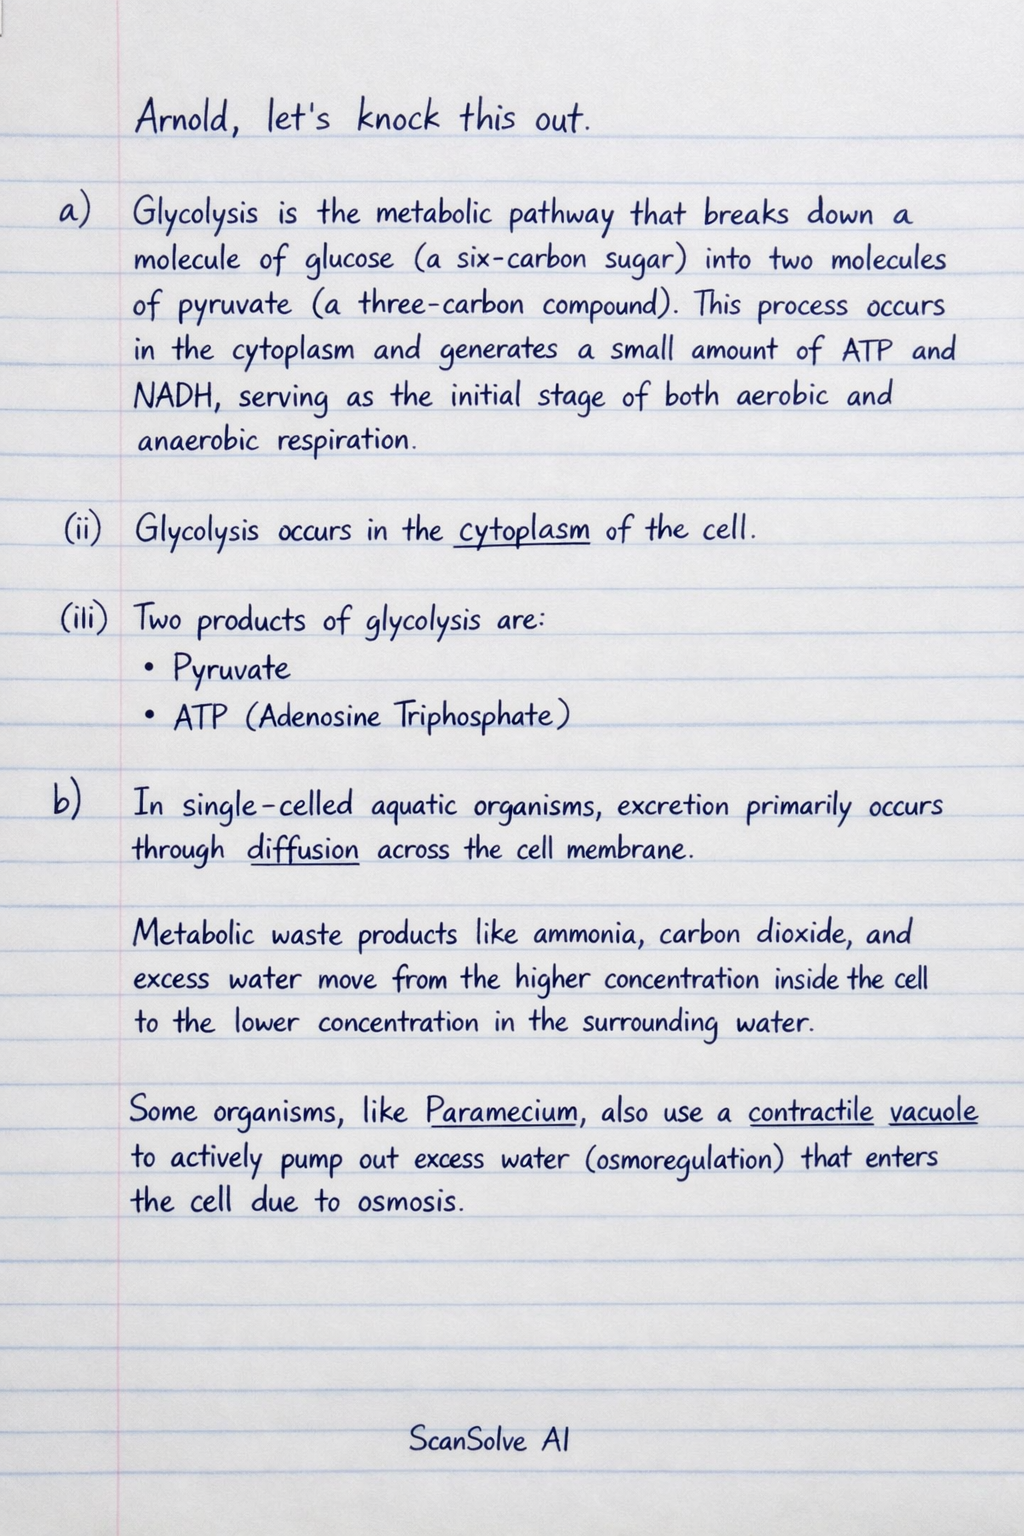 Arnold, let's knock this out.
a) Glycolysis is the metabolic pathway that breaks down a
molecule of glucose (a six-carbon sugar) into two molecules
of pyruvate (a three-carbon compound). This process occurs
in the cytoplasm and generates a small amount of ATP and
NADH, serving as the initial stage of both aerobic and
anaerobic respiration.
(ii) Glycolysis occurs in the cytoplasm of the cell.
(iii) Two products of glycolysis are:
• Pyruvate
• ATP (Adenosine Triphosphate)
b) In single-celled aquatic organisms, excretion primarily occurs
through diffusion across the cell membrane.
Metabolic waste products like ammonia, carbon dioxide, and
excess water move from the higher concentration inside the cell
to the lower concentration in the surrounding water.
Some organisms, like Paramecium, also use a contractile vacuole
to actively pump out excess water (osmoregulation) that enters
the cell due to osmosis.
ScanSolve AI